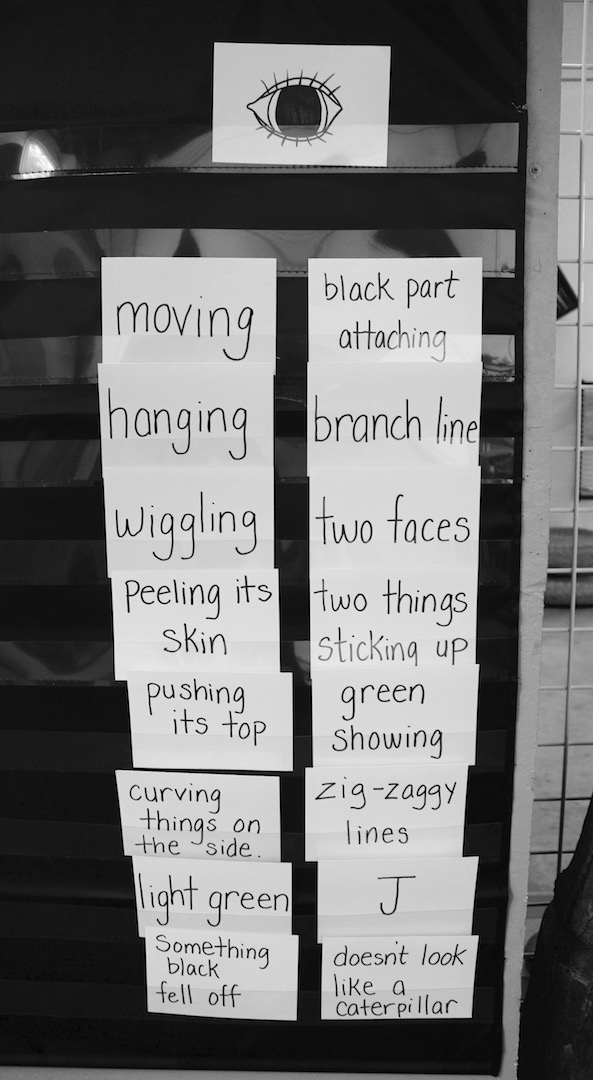 moving
hanging
wiggling
Peeling its
skin
pushing
its top
curving
things on
the side.
light green
Something
black
fell off
black part
attaching
branch line
two faces
two things
sticking up
green
showing
zig-zaggy
lines
J
doesn't look
like a
caterpillar